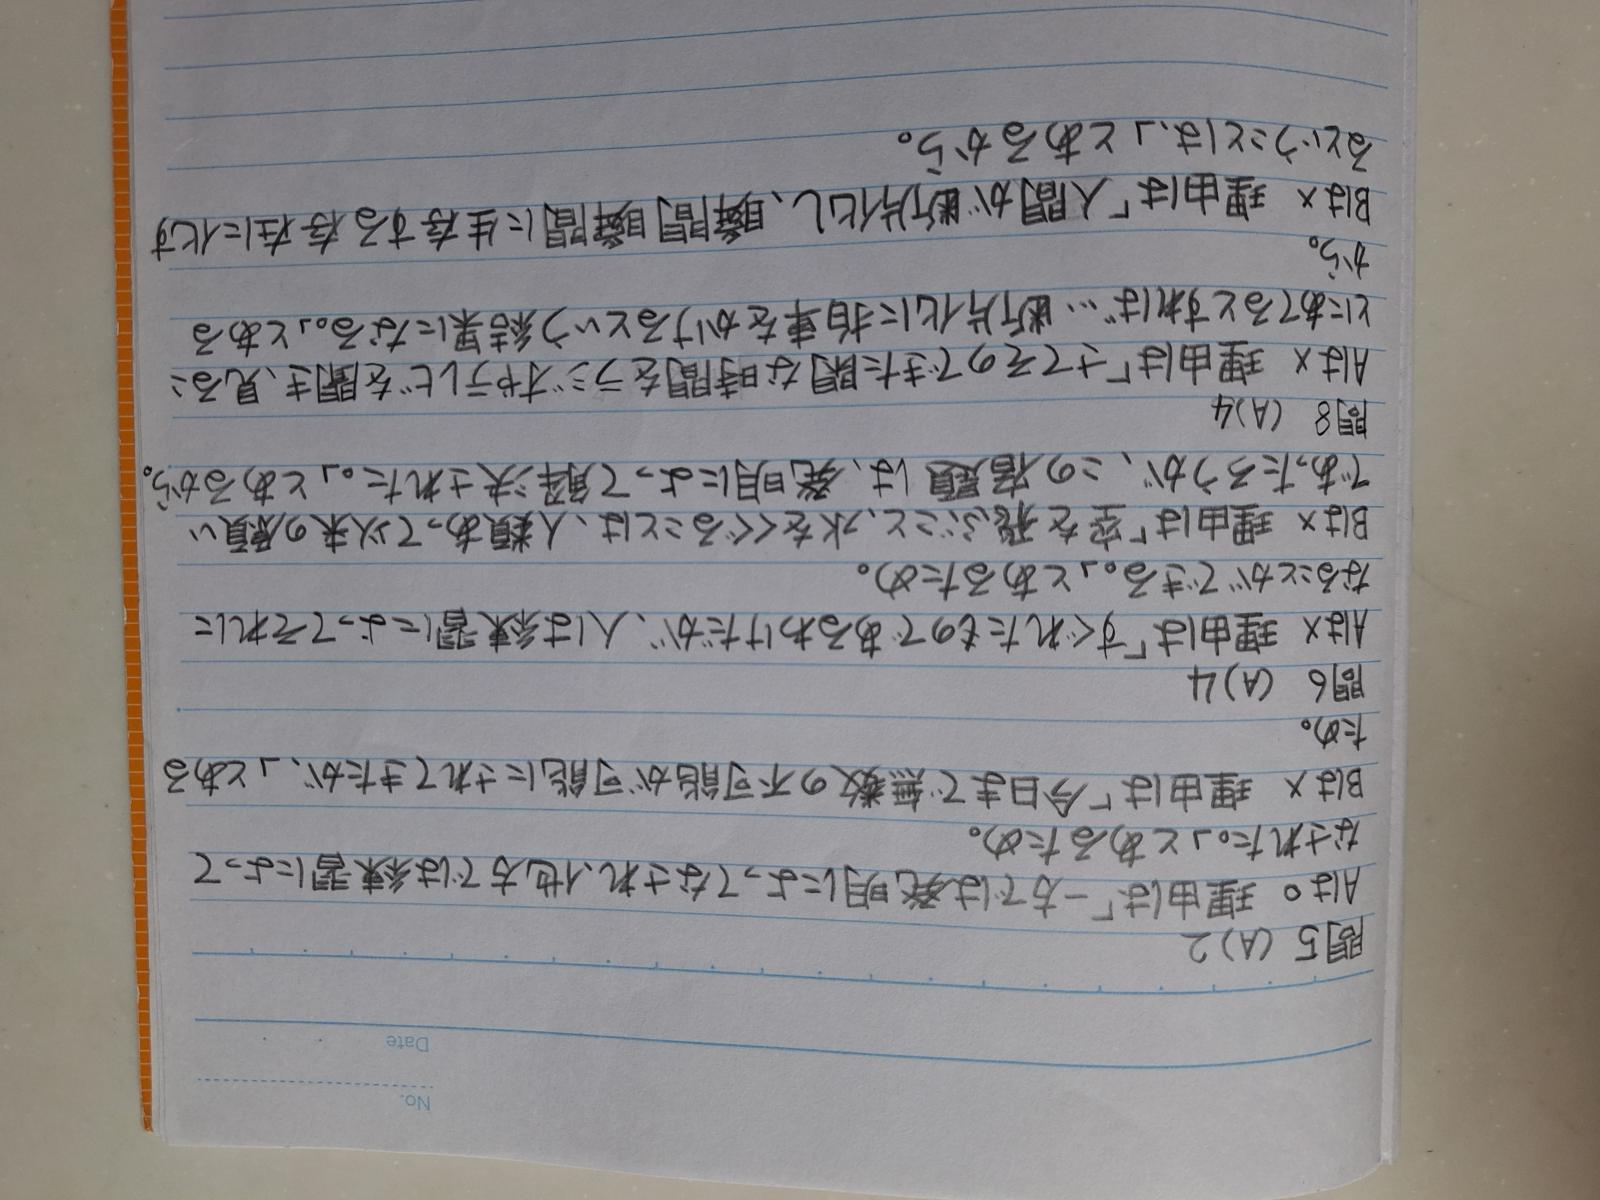 No.
Date
問5 (A)2
Aは○ 理由は「一方では発明によってなされ、他方では練習によって
なされた。」とあるため。
Bは× 理由は「今日まで無数の不可能が可能にされてきたが、」とある
ため。
問6 (A)4
Aは× 理由は「すぐれたものであるわけだが、人は練習によってそれに
なることができる。」とあるため。
Bは× 理由は「空を飛ぶこと、水をくぐることは、人類あって以来の願い
であったろうが、この宿題は、発明によって解決された。」とあるから。
問8 (A)4
Aは× 理由は「さてそのできた閑な時間をラジオやテレビを聞き、見るこ
とにあてるとすれば…断片化に拍車をかけるという結果になる。」とある
から。
Bは× 理由は「人間が断片化し、瞬間瞬間に生存する存在に化す
るということは、」とあるから。